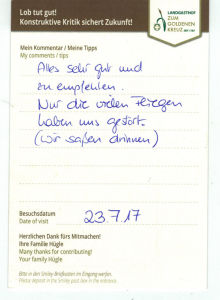 Lob tut gut!
Konstruktive Kritik sichert Zukunft!
LANDGASTHOF
ZUM
GOLDENEN
KREUZ
Mein Kommentar / Meine Tipps
My comments / tips
Alles sehr gut und
zu empfehlen.
Nur die vielen Fliegen
haben uns gestört.
(wir saßen drinnen)
Besuchsdatum
Date of visit
23.7.17
Herzlichen Dank fürs Mitmachen!
Ihre Familie Hügle
Many thanks for contributing!
Your family Hügle
Bitte in den Smiley Briefkasten im Eingang werfen.
Please deposit in the Smiley post box in the entrance.